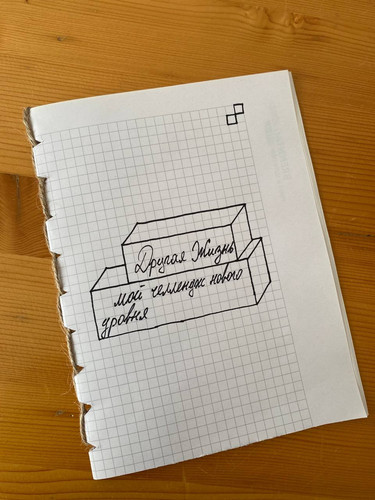 Другая Жизнь
мой челлендж нового
уровня